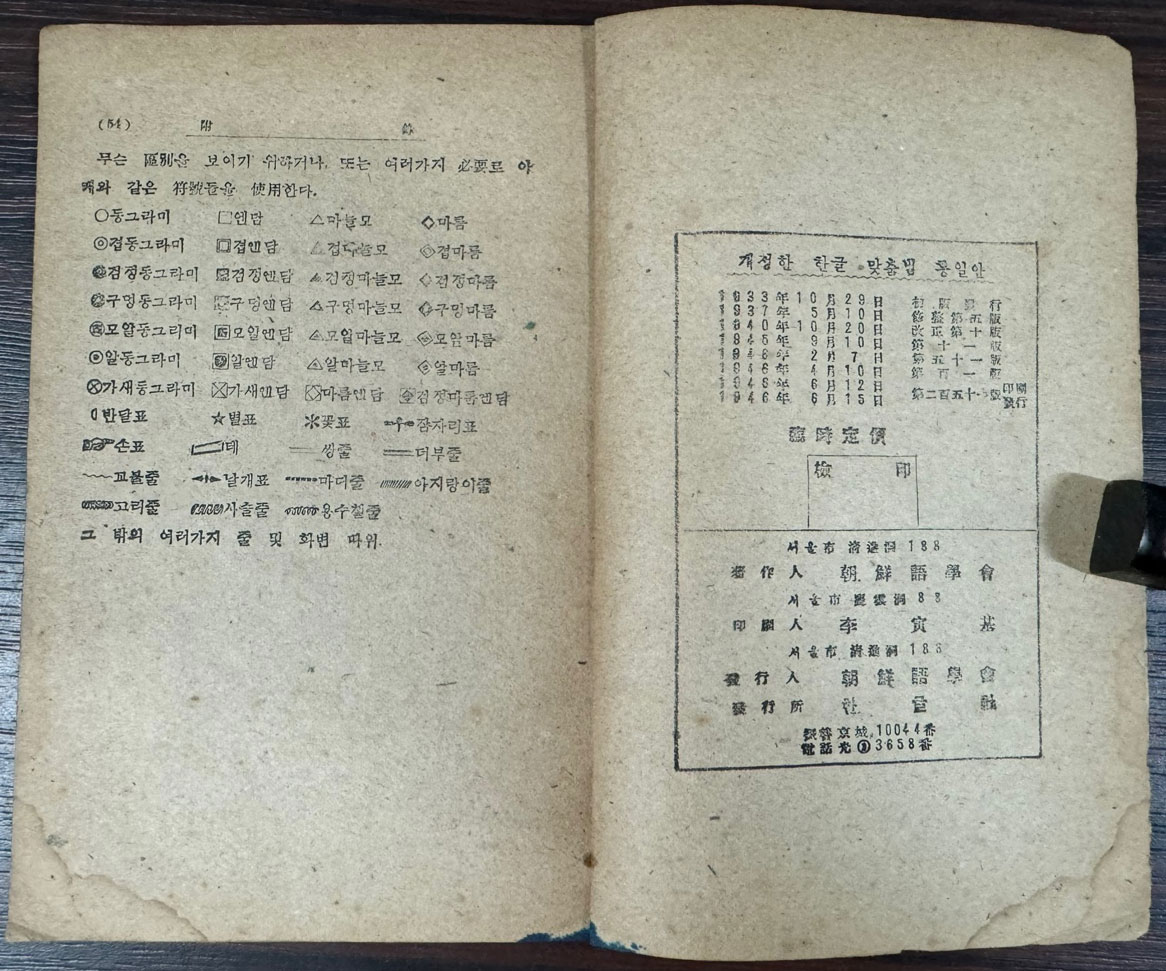 (54) 附 錄
무슨 區別을 보이기 위하거나, 또는 여러가지 必要로 아
래와 같은 符號들을 使用한다.
○동그라미 □엔담 △마늘모 ◇마름
◎겹동그라미 겹엔담 겹마늘모 겹마름
검정동그라미 검정엔담 검정마늘모 검정마름
구멍동그라미 구멍엔담 구멍마늘모 구멍마름
모알동그라미 모알엔담 모알마늘모 모알마름
알동그라미 알엔담 알마늘모 알마름
가새동그라미 가새엔담 마름엔담 검정마름엔담
반달표 ☆별표 꽃표 잠자리표
손표 테 쌍줄 더부줄
꼬불줄 날개표 마디줄 아지랑이줄
고리줄 사슬줄 용수철줄
그 밖의 여러가지 줄 및 화변 따위.
개정한 한글 맞춤법 통일안
1933年10月29日 初版發行
1937年 5月10日 修整第五版
1940年10月20日 改正第十版
1945年 9月10日 第十一版
1946年 2月 7日 第五十一版
1946年 4月10日 第百一版
1946年 6月12日 印刷
1946年 6月15日 第二百五十一版發行
臨時定價
檢印
서울市 淸進洞 188
著作人 朝鮮語學會
서울市 雲洞 88
印刷人 李寅基
서울市 淸進洞 188
發行人 朝鮮語學會
發行所 社
振替京城 10044番
電話光③3658番